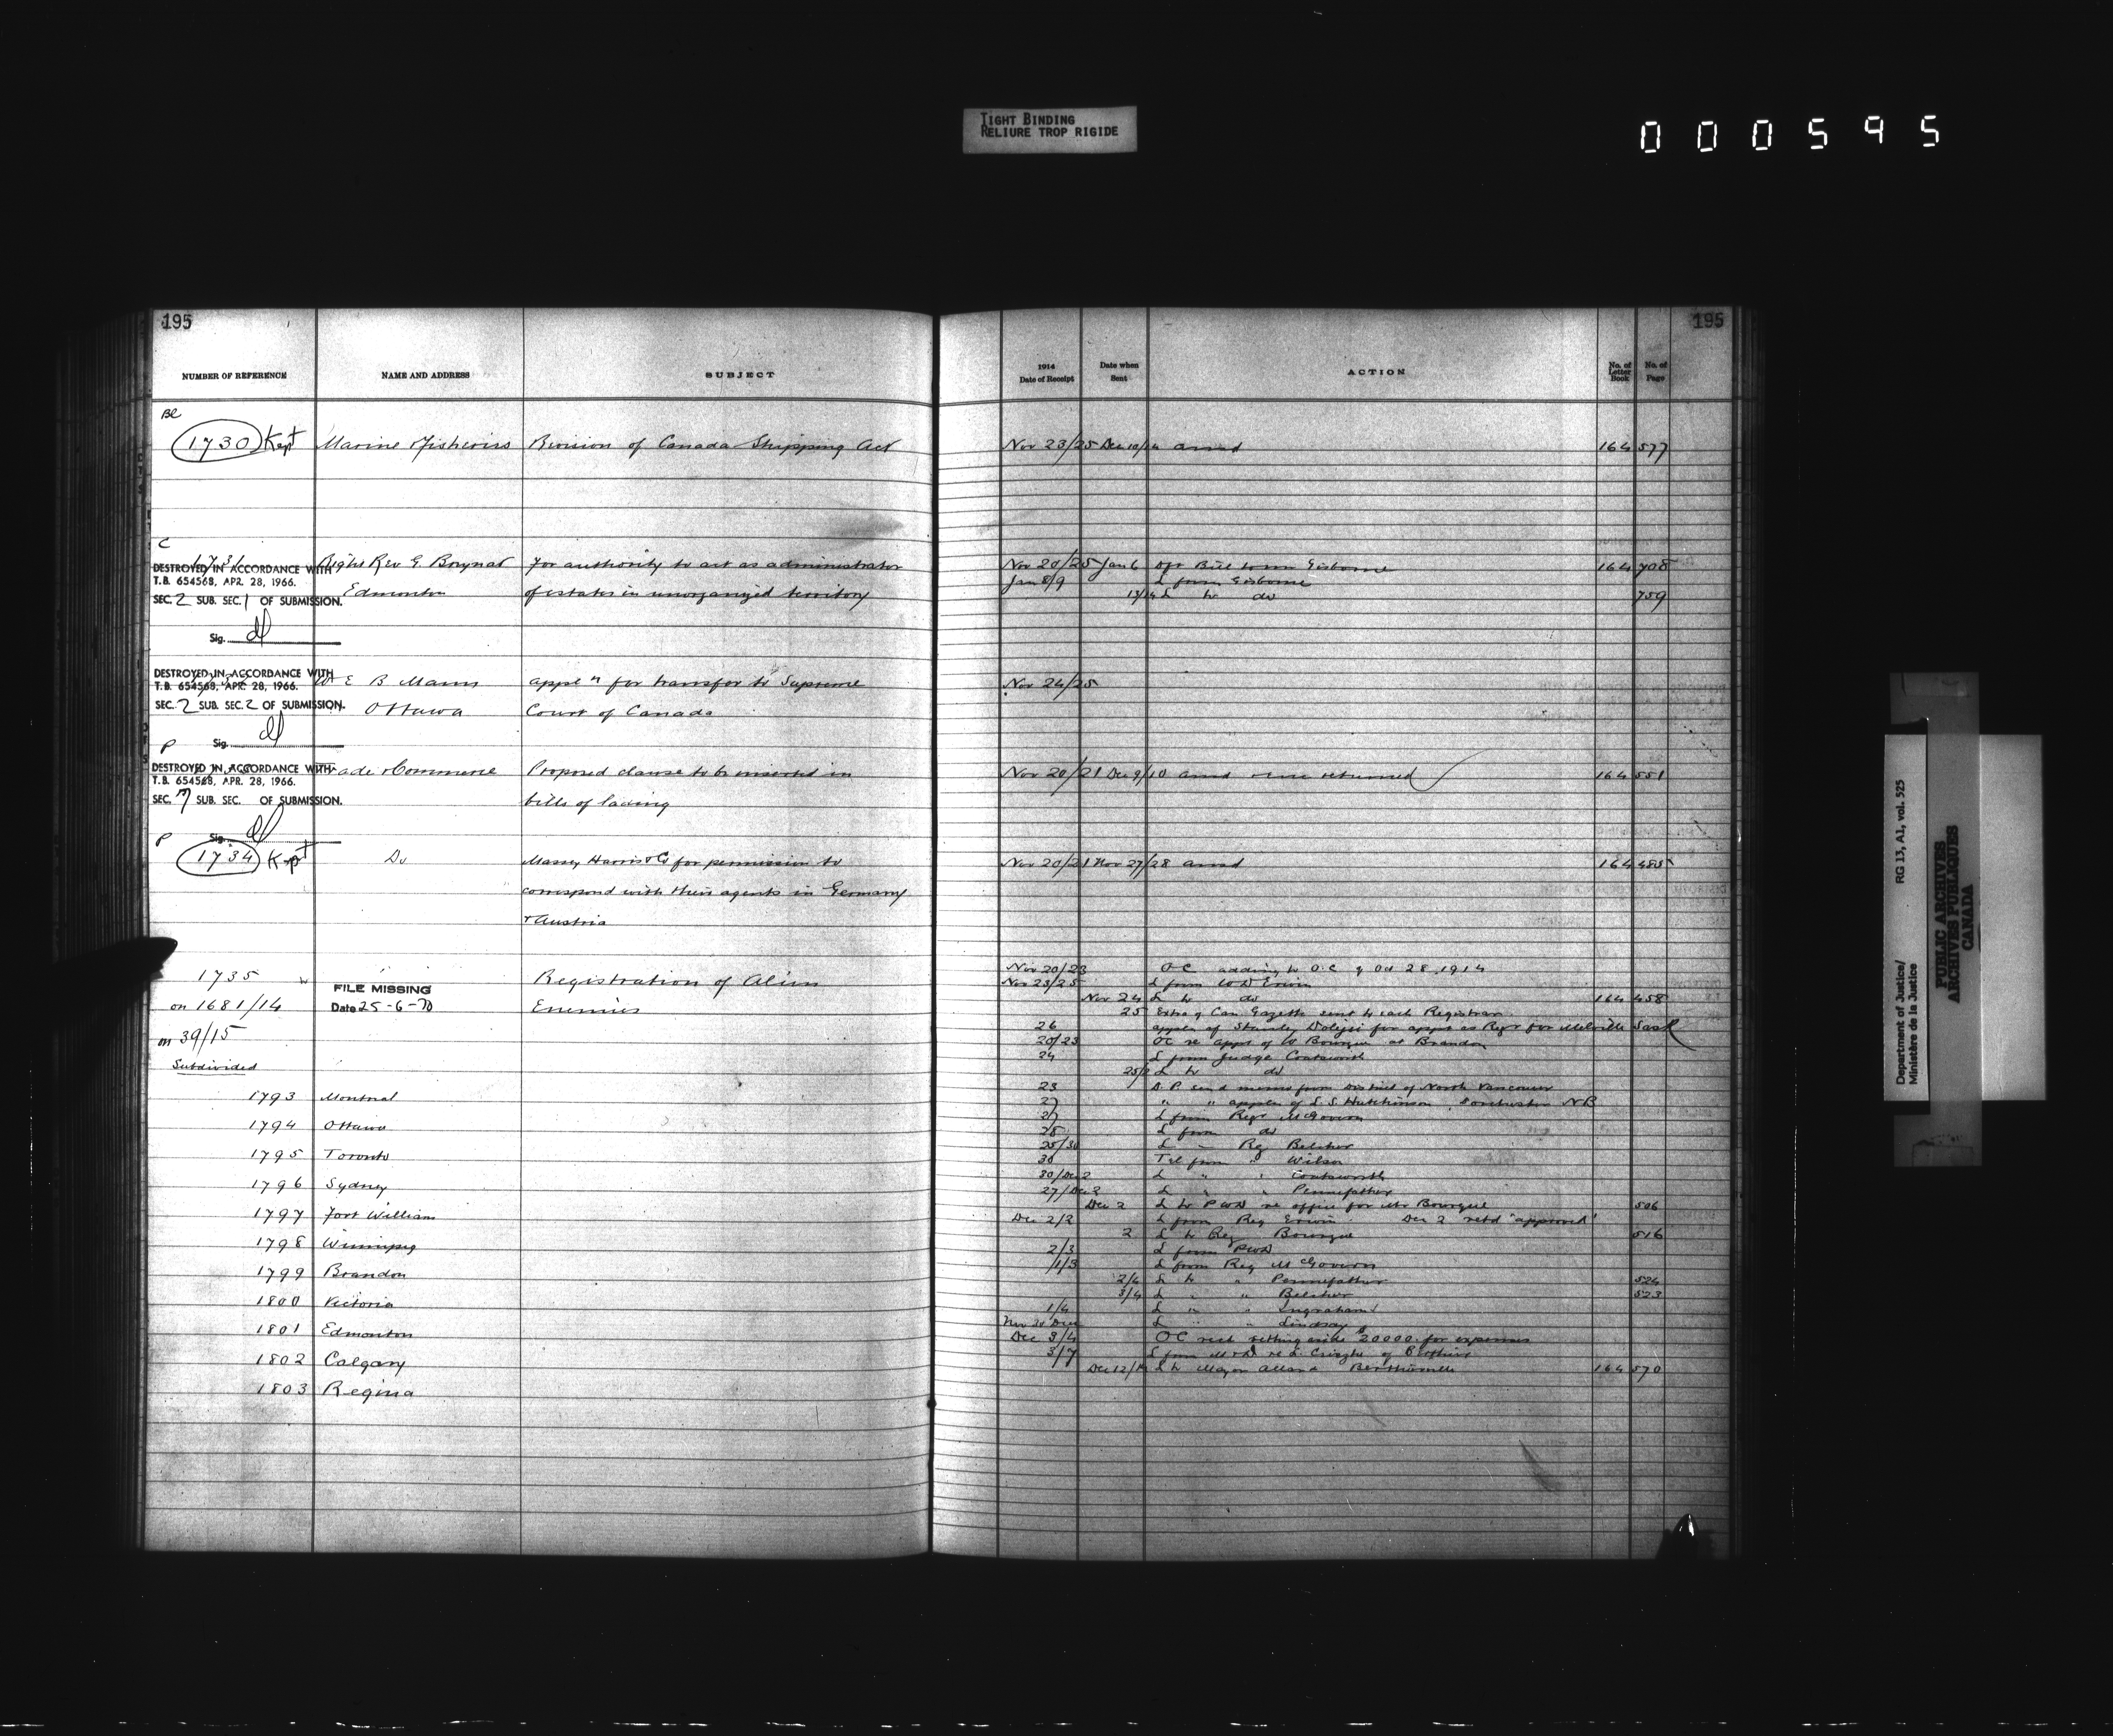 TIGHT BINDING
RELIURE TROP RIGIDE
000595
195
NUMBER OF REFERENCE NAME AND ADDRESS SUBJECT
Bl
1730 Kept Marine & Fisheries Revision of Canada Shipping Act
C
1731 Right Rev G. For authority to act as administrator
DESTROYED IN ACCORDANCE WITH
T.B. 654568, APR. 28, 1966.
Edmonton of estates in unorganized territory
SEC. 2 SUB. SEC. 1 OF SUBMISSION.
Sig.
DESTROYED IN ACCORDANCE WITH
T.B. 654568, APR. 28, 1966.
E B Mann appln for transfer to Supreme
SEC. 2 SUB. SEC. 2 OF SUBMISSION.
Ottawa Court of Canada
P Sig.
DESTROYED IN ACCORDANCE WITH
ade & Commerce Proposed clause to be inserted in
T.B. 654568, APR. 28, 1966.
SEC. 7 SUB. SEC. OF SUBMISSION.
bills of lading
P Sig.
1734 Kept Do Massey Harris & Co for permission to
correspond with their agents in Germany
& Austria
1735 Registration of Alien
FILE MISSING
on 1681/14 Date 25-6-70 Enemies
on 39/15
Subdivided
1793 Montreal
1794 Ottawa
1795 Toronto
1796 Sydney
1797 Fort William
1798 Winnipeg
1799 Brandon
1800 Victoria
1801 Edmonton
1802 Calgary
1803 Regina
195
1914
Date of Receipt Date when Sent ACTION No. of Letter Book No. of Page
Nov 23/25 Dec 10/14 ansd 164 577
Nov 20/25 Jan 6 Bill Gisborne 164 708
Jan 8/9 L from Gisborne
13/14 L to do 759
Nov 24/25
Nov 20/21 Dec 9/10 ansd returned 164 551
Nov 20/21 Nov 27/28 ansd 164 485
Nov 20/23 OC adding to O.C. of Oct 28, 1914
Nov 23/25 L from Erwin
Nov 24 L to do 164 458
25 Extra of Can. Gazette sent to each Registrar
26 appln of Stanley for appt as Regr for Melville Sask
20/23 OC re appt of W Bourque at Brandon
24 L from Judge Coatsworth
25/ L to do
23 D.P. send memo from District of North Vancouver
27 " " appln of S. Hutchinson, Dorchester NB
27 L from Regr McGovern
28 L from do
25/30 L " Reg Belcher
30 Tel from " Wilson
30/Dec 2 L " " Coatsworth
27/Dec 2 L " " Pennefather
Dec 2 L to PWD re office for Mr Bourque 506
Dec 2/2 L from Reg Erwin. Dec 2 retd "approved"
2 L to Reg Bourque 516
2/3 L from PWD
1/3 L from Reg McGovern
2/4 L to " Pennefather 524
3/4 L " " Belcher 523
1/4 L " " Ingraham
L " " Lindsay
Dec 3/4 OC setting aside $20000. for expenses
3/7 L from
Dec 12/14 L to Mayor Berthierville 164 570
Department of Justice/ RG 13, A1, vol. 525
Ministère de la Justice
PUBLIC ARCHIVES
ARCHIVES PUBLIQUES
CANADA